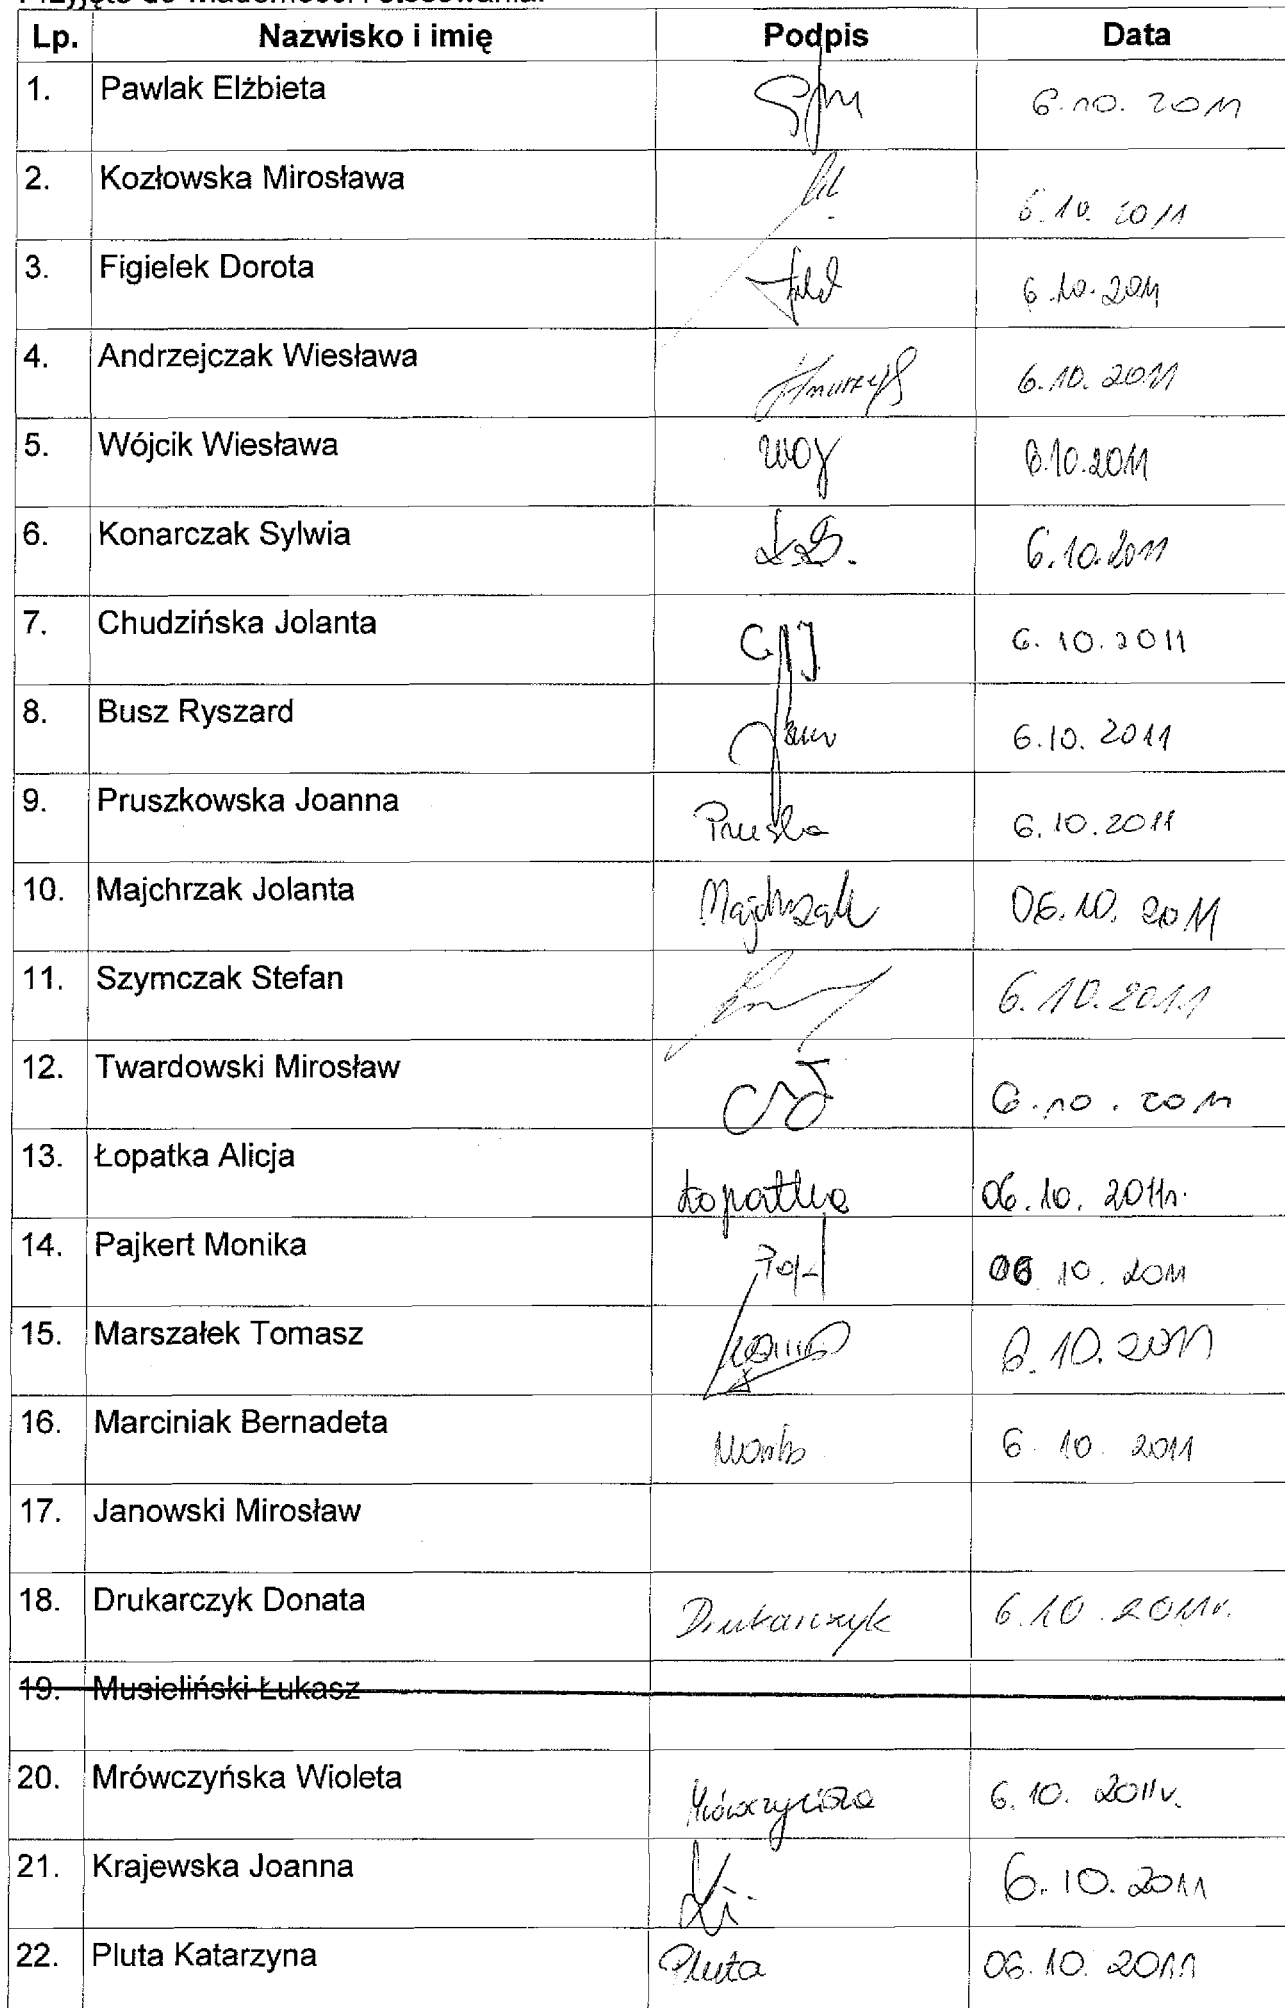 Przyjęto do wiadomości i stosowania:
Lp. Nazwisko i imię Podpis Data
1. Pawlak Elżbieta 6.10.2011
2. Kozłowska Mirosława 6.10.2011
3. Figielek Dorota 6.10.2011
4. Andrzejczak Wiesława 6.10.2011
5. Wójcik Wiesława Wój 6.10.2011
6. Konarczak Sylwia K.S. 6.10.2011
7. Chudzińska Jolanta 6.10.2011
8. Busz Ryszard 6.10.2011
9. Pruszkowska Joanna 6.10.2011
10. Majchrzak Jolanta Majchrzak 06.10.2011
11. Szymczak Stefan 6.10.2011
12. Twardowski Mirosław 6.10.2011
13. Łopatka Alicja Łopatka 06.10.2011r.
14. Pajkert Monika 06 10.2011
15. Marszałek Tomasz 6.10.2011
16. Marciniak Bernadeta 6.10.2011
17. Janowski Mirosław
18. Drukarczyk Donata Drukarczyk 6.10.2011r.
19. Musieliński Łukasz
20. Mrówczyńska Wioleta Mrówczyńska 6.10.2011r.
21. Krajewska Joanna 6.10.2011
22. Pluta Katarzyna Pluta 06.10.2011